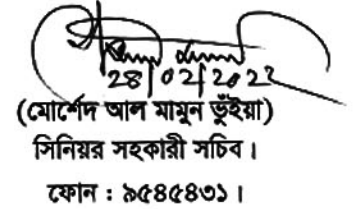 28/02/2022
(মোর্শেদ আল মামুন ভূঁইয়া)
সিনিয়র সহকারী সচিব।
ফোন : ৯৫৪৫৪৩১।